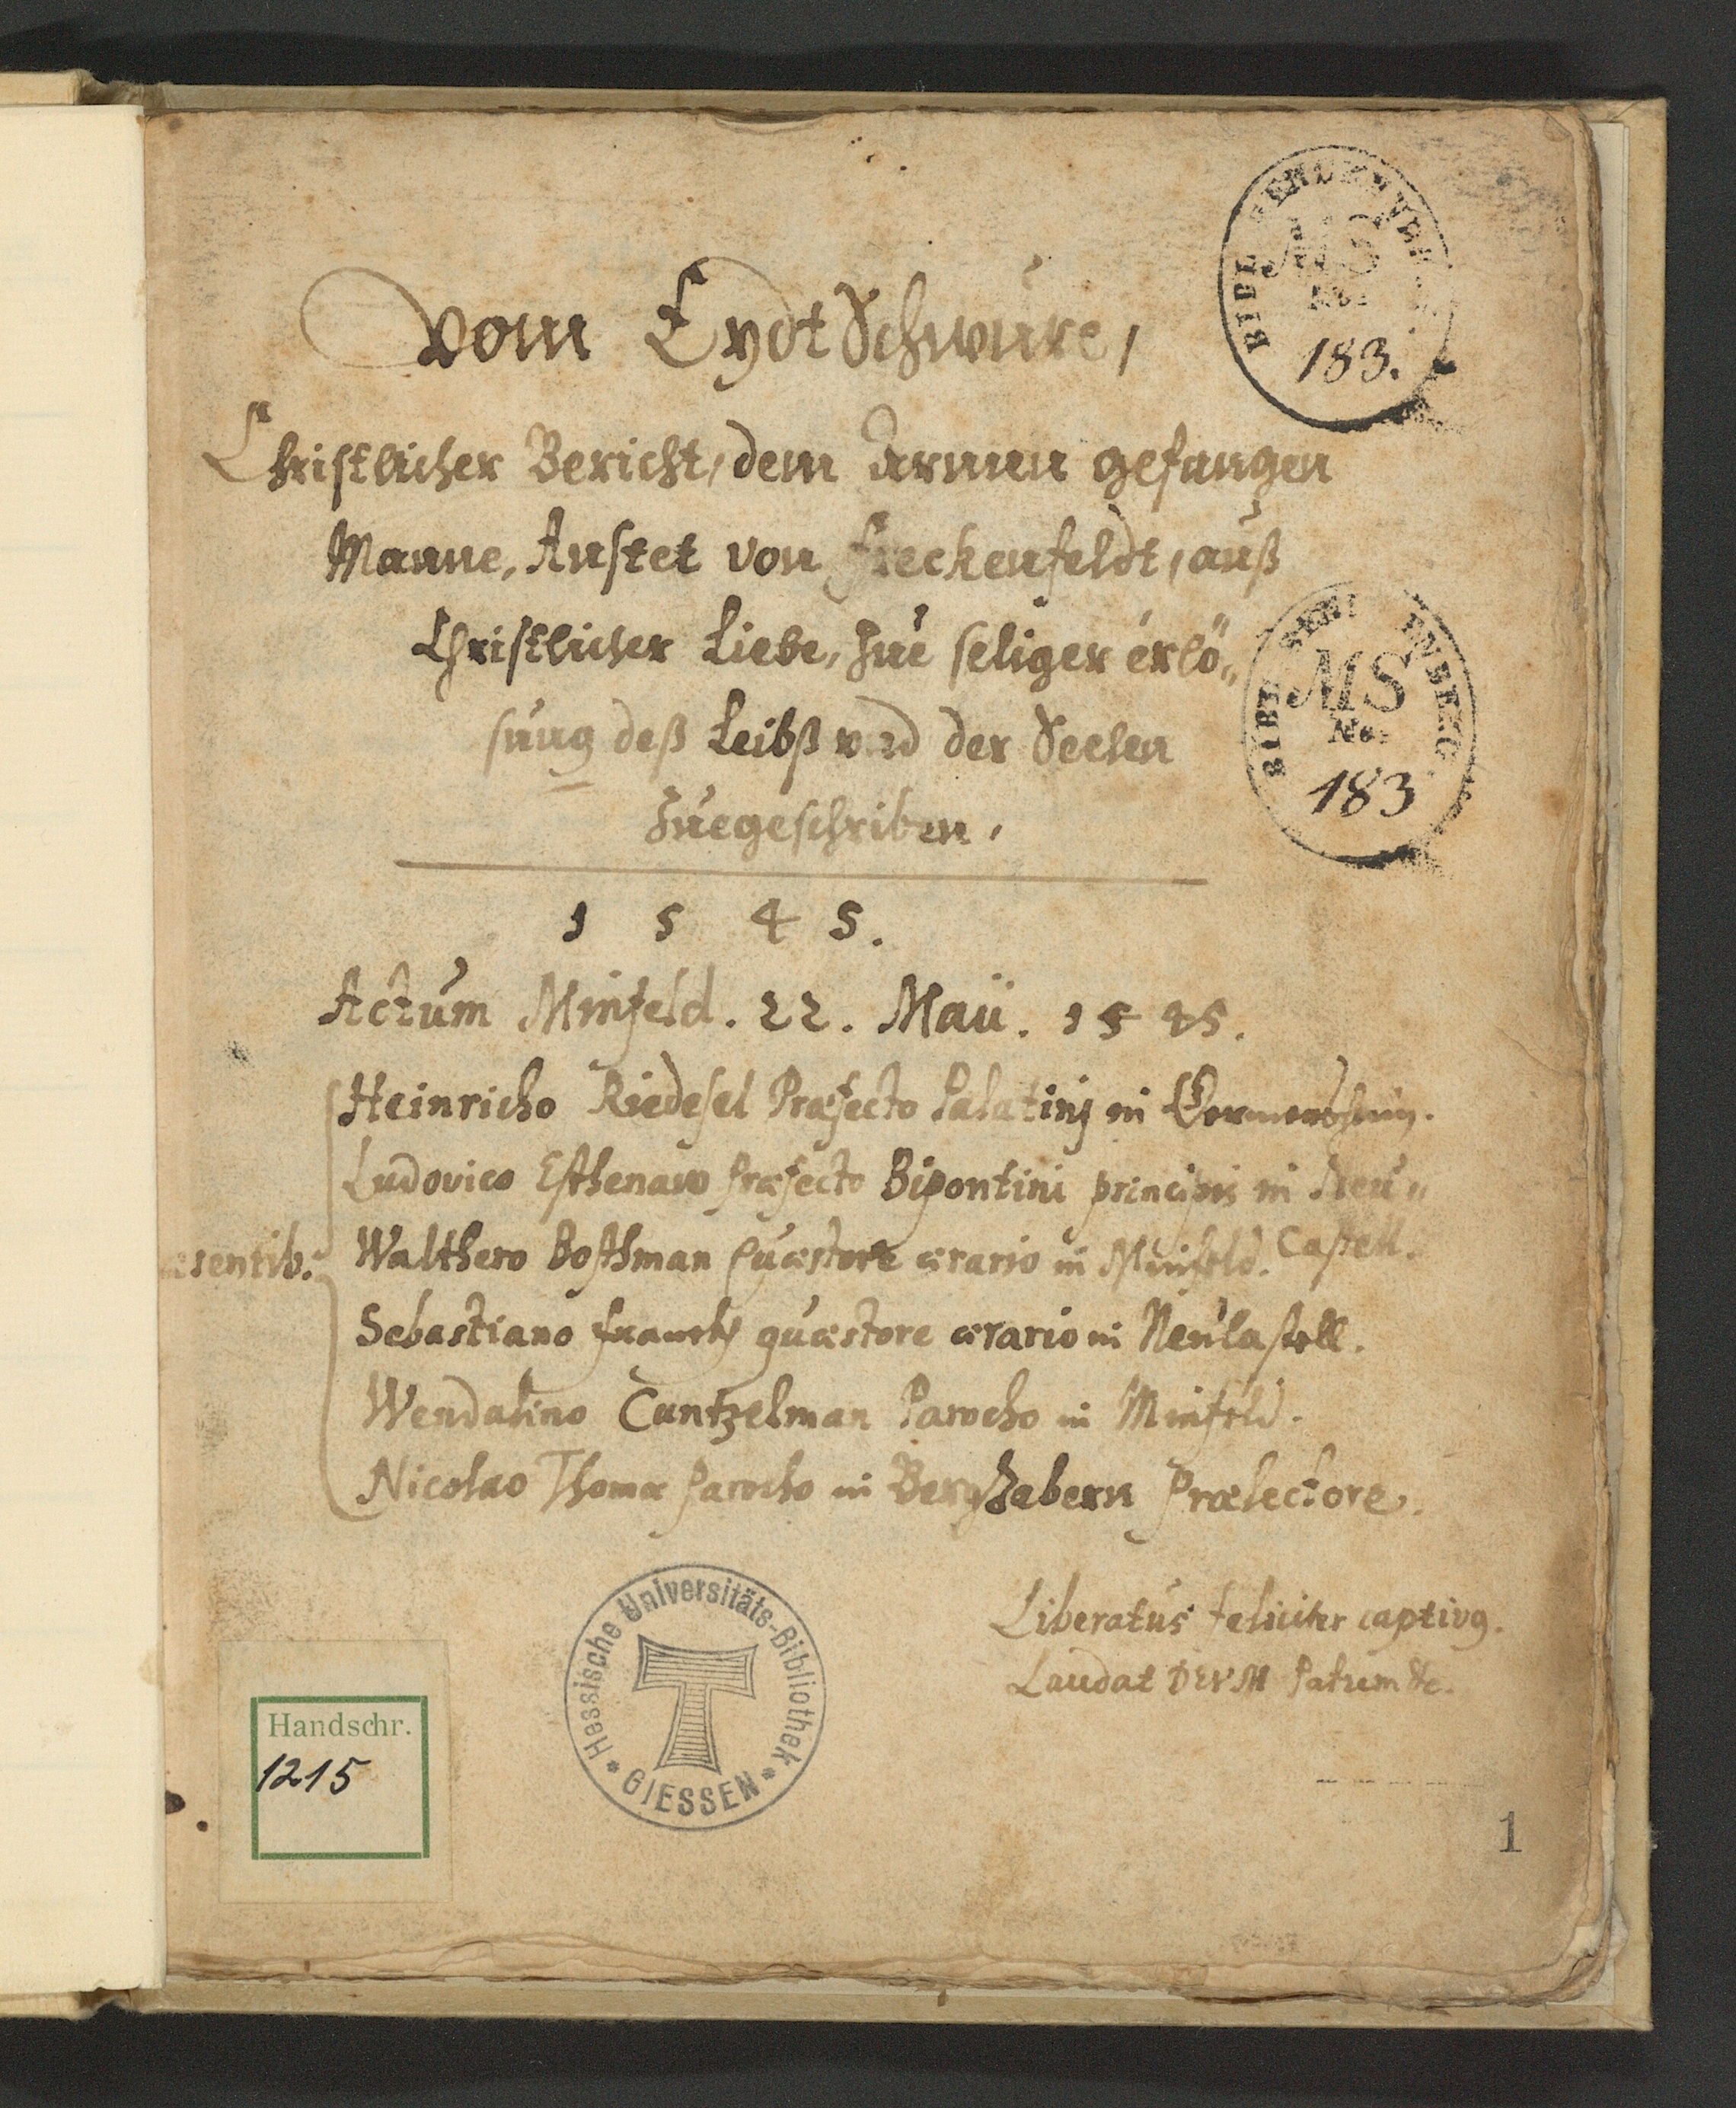 Vom Eydt Schwüre,
Christlicher Bericht, dem armen gefangen
Manne, Anstet von Freckenfeldt, auß
Christlicher Liebe, Zue seliger erlö„
sung deß Leibß vnd der Seelen
Zuegeschriben.
1 5 4 5.
Actum Minfeld. 22. Maii. 1545.
Heinricho Riedesel Præfecto Palatini in Germersheim.
Ludovico Esthenaw Præfecto Bipontini principis in Neu„
Castell.
æsentib.
Walthero Bosthman Quæstore ærario in Minfeld.
Sebastiano quæstore ærario in Neucastell.
Wendalino Cuntzelman Parocho in Minfeld.
Nicolao Thomæ Parocho in BergZabern Prælectore.
Liberatus feliciter captivg.
Laudat DEVM Patrem &c.
BIBL
MS
No.
183.
BIBL SENCKENBERG.
MS
No.
183
Hessische Universitäts-Bibliothek
GIESSEN
Handschr.
1215
1